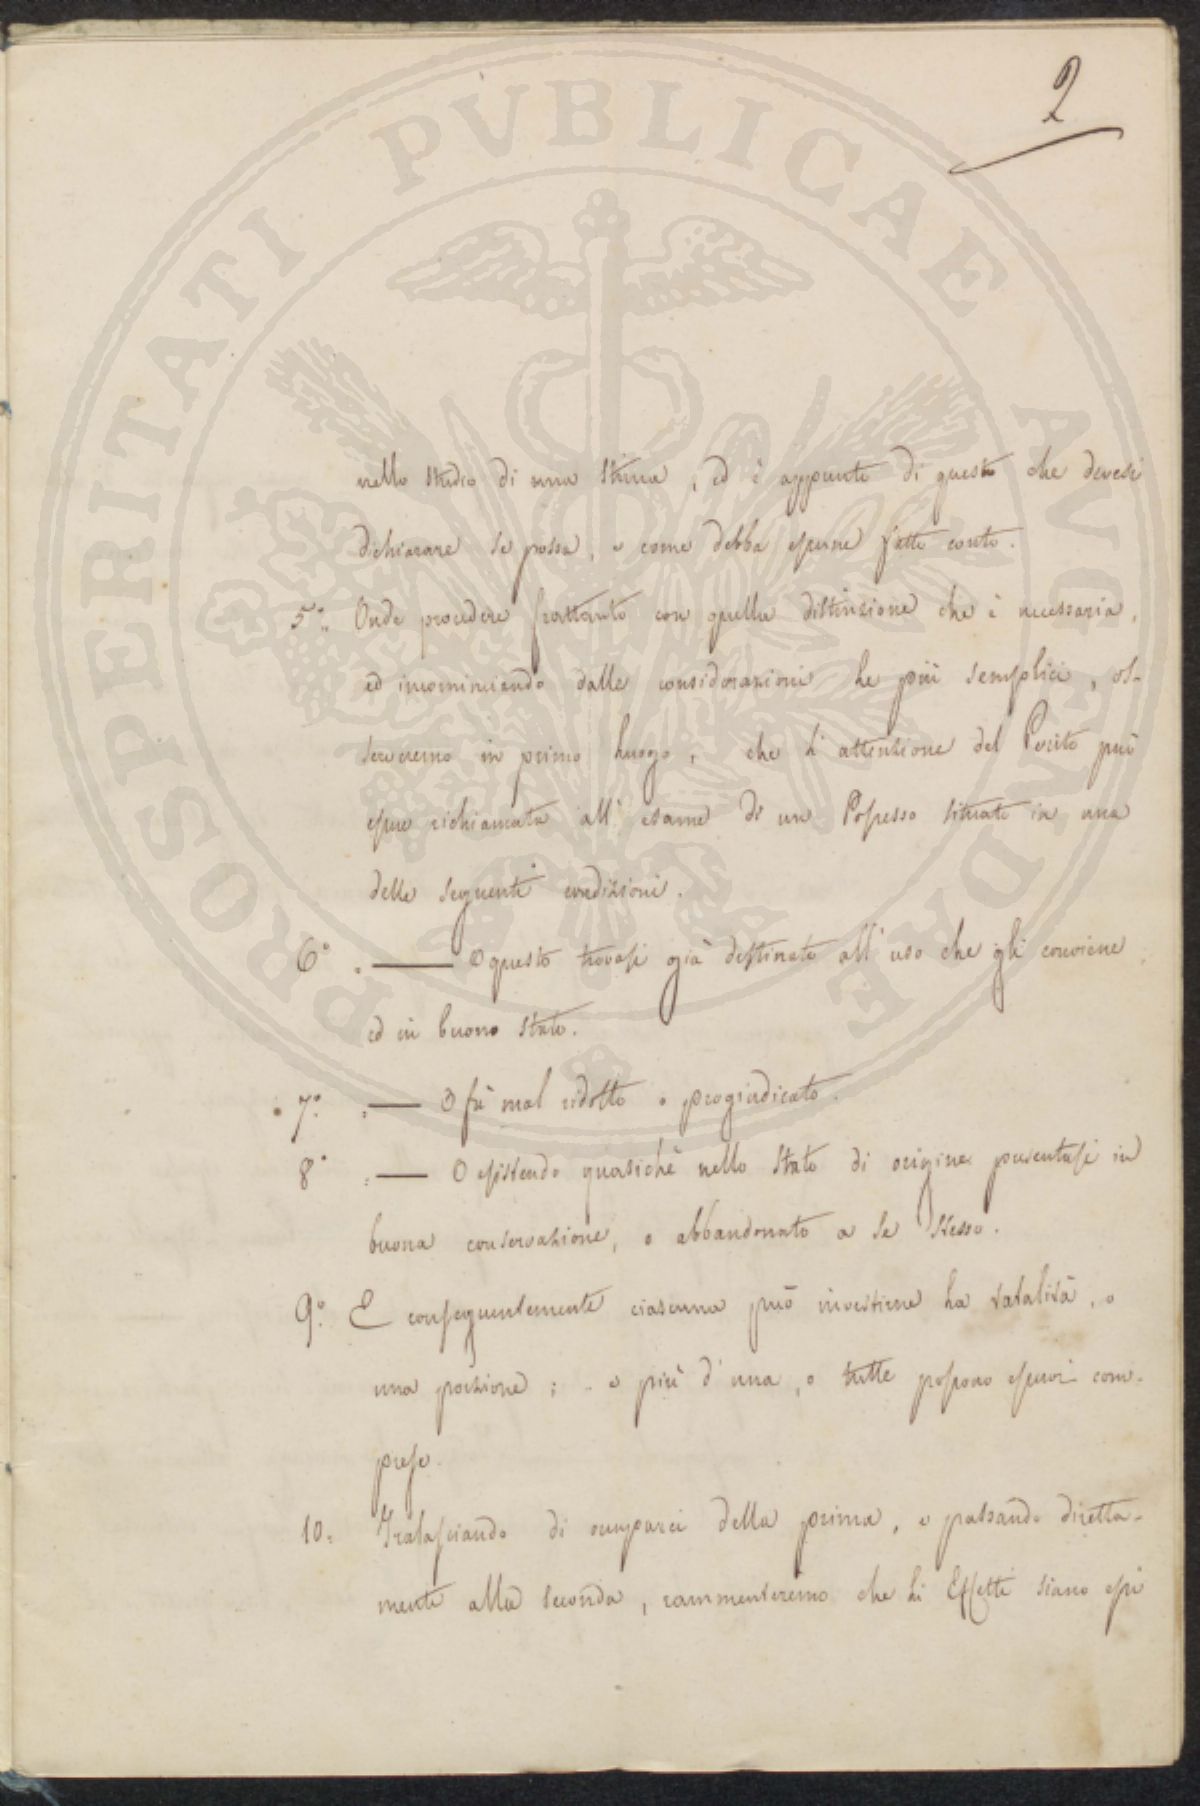 2
PROSPERITATI PVBLICAE AVGENDAE
nello studio di una Stima, ed è appunto di questo che devesi
dichiarare se possa, e come debba esserne fatto conto.
5°. Onde procedere frattanto con quella distinzione che è necessaria,
ed incominciando dalle considerazioni le più semplici, os-
serveremo in primo luogo, che l'attenzione del Perito può
esser richiamata all'esame di un Possesso situato in una
delle seguenti condizioni.
6° — O questo trovasi già destinato all'uso che gli conviene,
ed in buono stato.
7°. — O fù mal ridotto o progiudicato.
8° — O esistendo quasichè nello Stato di origine presentasi in
buona conservazione, o abbandonato a se stesso.
9°. E conseguentemente ciascuna può investirne la totalità, o
una porzione; o più d'una, o tutte possono esservi com-
prese.
10. Tralasciando di occuparci della prima, e passando diretta-
mente alla seconda, rammenteremo che li Effetti siano essi